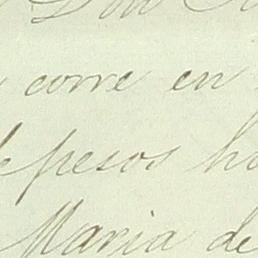 Don
corre en
de pesos
Maria de